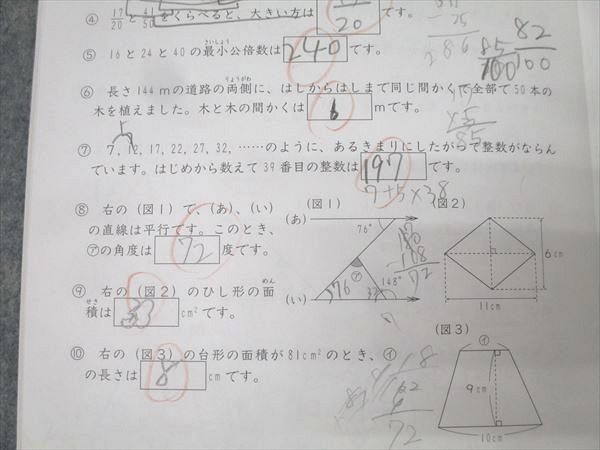 ④ 17/20と41/50をくらべると、大きい方は 17/20 です。
⑤ 16と24と40の最小公倍数は 240 です。
⑥ 長さ144mの道路の両側に、はしからはしまで同じ間かくで全部で50本の
木を植えました。木と木の間かくは 6 mです。
⑦ 7, 12, 17, 22, 27, 32, ……のように、あるきまりにしたがって整数がならん
でいます。はじめから数えて39番目の整数は 197 です。
7+5×38
⑧ 右の(図1)で、(あ)、(い)
の直線は平行です。このとき、
㋐の角度は 72 度です。
⑨ 右の(図2)のひし形の面
積は 33 cm²です。
⑩ 右の(図3)の台形の面積が81cm²のとき、㋑
の長さは 8 cmです。
(図1)
(あ)
76°
㋐
76
32
148°
(い)
180
-108
72
(図2)
6cm
11cm
(図3)
㋑
9cm
10cm
82
100
85
100
72